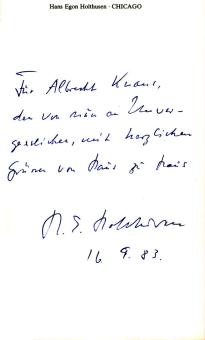 Hans Egon Holthusen · CHICAGO
Für Albrecht Knaus,
den von nun an Unver-
gesslichen, mit herzlichen
Grüssen von Haus zu Haus
H. E. Holthusen
16. 9. 83.